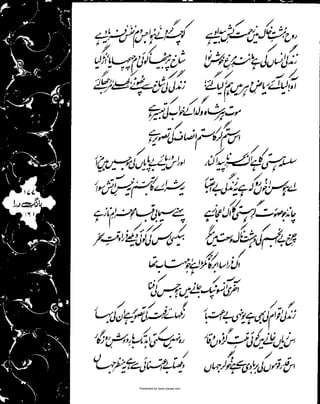 روح مشتِ خاک میں زحمت کشِ بیداد ہے کوچہ گردِ نے ہوا جس دم نفس فریاد ہے
زندگی انساں کی ہے مانندِ مرغِ خوش نوا شاخ پر بیٹھا کوئی دم چہچہایا اڑ گیا
آہ کیا آئے ریاضِ دہر میں ہم کیا گئے زندگی کی شاخ سے پھوٹے کھلے مرجھا گئے
موت ہر شاہ و گدا کے خواب کی تعبیر ہے
اس ستم گر کا ستم انصاف کی تصویر ہے
سلسلہ ہستی کا ہے اک بحرِ نا پیدا کنار اور اس دریائے بے پایاں کی موجیں ہیں مزار
اے ہوس خوں رو کہ ہے یہ زندگی بے اعتبار یہ شرارے کا تبسم یہ خسِ آتش سوار
چاند جو صورت گرِ ہستی کا اک اعجاز ہے پہنے سیمابی قبا محوِ خرامِ ناز ہے
چرخِ بے انجم کی دہشت ناک وسعت میں مگر بیکسی اس کی کوئی دیکھے ذرا وقتِ سحر
اک ذرا سا ابر کا ٹکڑا ہے جو مہتاب تھا
آخری آنسو ٹپک جانے میں ہو جس کی فنا
زندگی اقوام کی بھی ہے یونہی بے اعتبار رنگ ہائے رفتہ کی تصویر ہے ان کی بہار
اس زیاں خانے میں کوئی ملتِ گردوں وقار رہ نہیں سکتی ابد تک بارِ دوشِ روزگار
اس قدر قوموں کی بربادی سے ہے خوگر جہاں دیکھتا بے اعتنائی سے ہے یہ منظر جہاں
بانگِ درا
۱۶۱
Presented by www.ziaraat.com